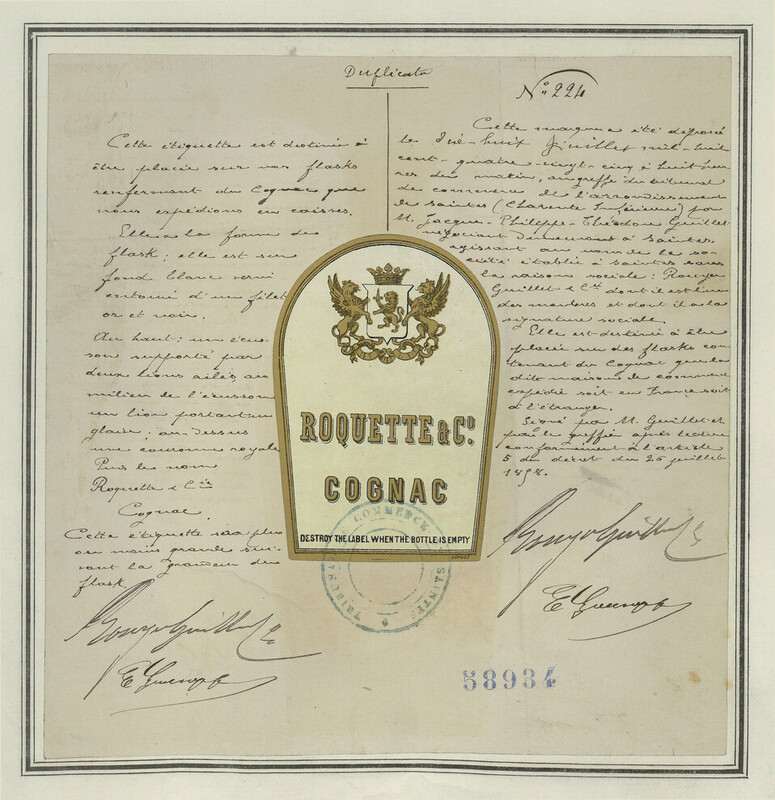 Duplicata
N° 224
Cette étiquette est destinée à
être placée sur nos flasks
renfermant du Cognac que
nous expédions en caisses.
Elle a la forme du
flask; elle est sur
fond blanc verni
entouré d'un filet
or et noir.
Au haut: un écus-
son supporté par
deux lions ailés au
milieu de l'écusson
un lion portant un
glaive; au-dessus
une couronne royale
Puis le nom
Roquette & Cie
Cognac
Cette étiquette sera plus
ou moins grande sui-
vant la grandeur du
flask.
Rouyer Guillet & Cie
Cette marque a été déposé
le dix-huit Juillet mil-huit
cent-quatre-vingt-cinq à huit heu-
res du matin, au greffe du tribunal
de commerce de l'arrondissement
de Saintes (Charente Inférieure) par
M. Jacques-Philippe-Théodore Guillet
négociant demeurant à Saintes,
agissant au nom de la so-
ciété établie à Saintes sous
la raison sociale: Rouyer
Guillet & Cie dont il est l'un
des membres et dont il a la
signature sociale.
Elle est destinée à être
placée sur des flasks con-
tenant du Cognac que la
dite maison de commerce
expédie soit en France soit
à l'étranger.
Signé par M. Guillet et
par le greffier après lecture
conformément à l'article
5 du décret du 26 juillet
1858.
Rouyer Guillet & Cie
ROQUETTE & CO.
COGNAC
DESTROY THE LABEL WHEN THE BOTTLE IS EMPTY
TRIBUNAL DE COMMERCE SAINTES
58934